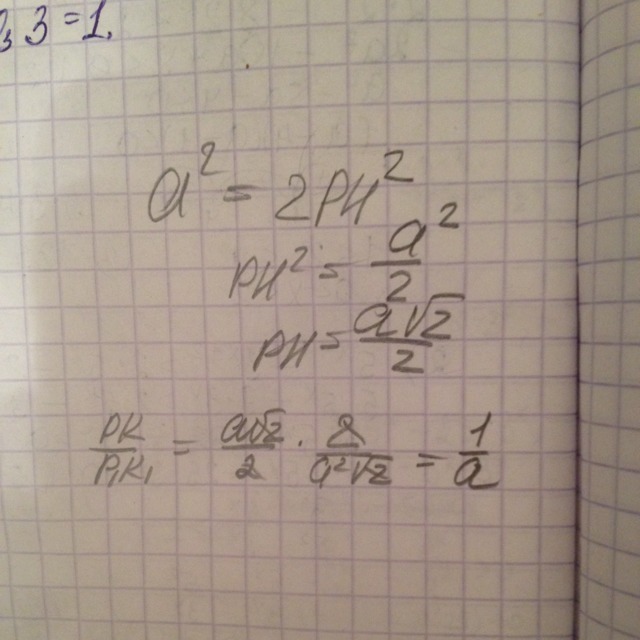 3 = 1.
a² = 2PH²
PH² = a²/2
PH = a√2/2
PK/PK₁ = a√2/2 · 2/a²√2 = 1/a